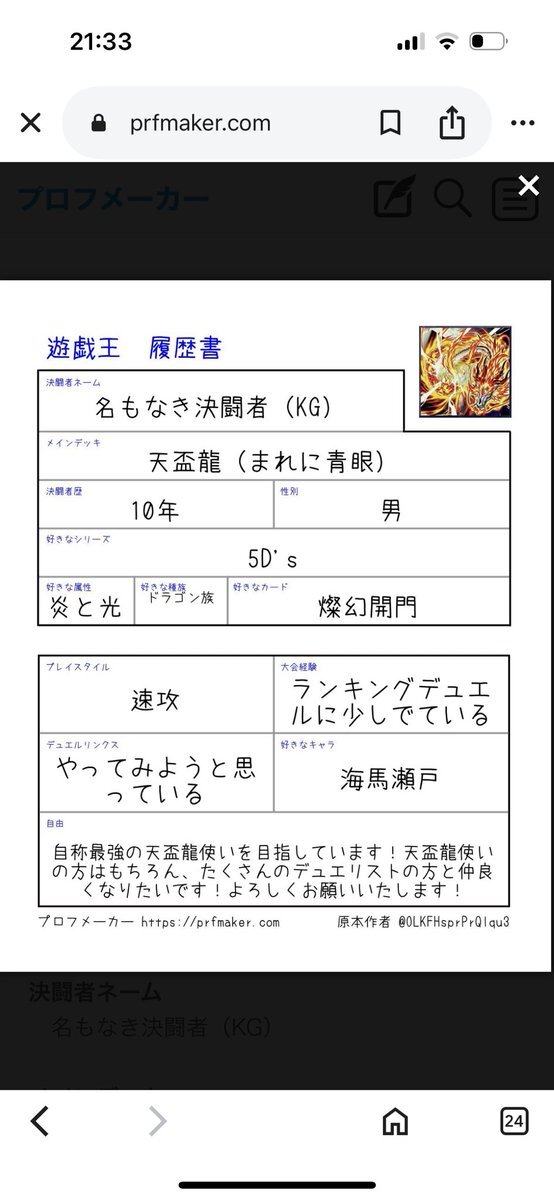 21:33
prfmaker.com
プロフメーカー
遊戯王 履歴書
決闘者ネーム
名もなき決闘者（KG）
メインデッキ
天盃龍（まれに青眼）
決闘者歴
10年
性別
男
好きなシリーズ
5D's
好きな属性
炎と光
好きな種族
ドラゴン族
好きなカード
燦幻開門
プレイスタイル
速攻
大会経験
ランキングデュエ
ルに少しでている
デュエルリンクス
やってみようと思
っている
好きなキャラ
海馬瀬戸
自由
自称最強の天盃龍使いを目指しています！天盃龍使い
の方はもちろん、たくさんのデュエリストの方と仲良
くなりたいです！よろしくお願いいたします！
プロフメーカー https://prfmaker.com
原本作者 @OLKFHsprPrQlqu3
決闘者ネーム
名もなき決闘者（KG）
24